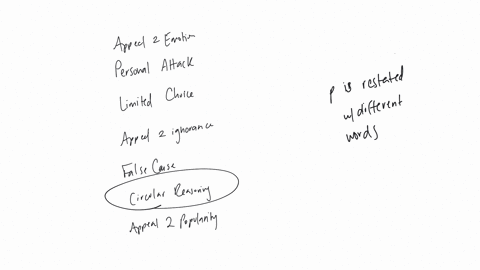 Appeal 2 Emotion
Personal Attack
Limited Choice
Appeal 2 ignorance
False Cause
Circular Reasoning
Appeal 2 Popularity
p is restated
w/ different
words